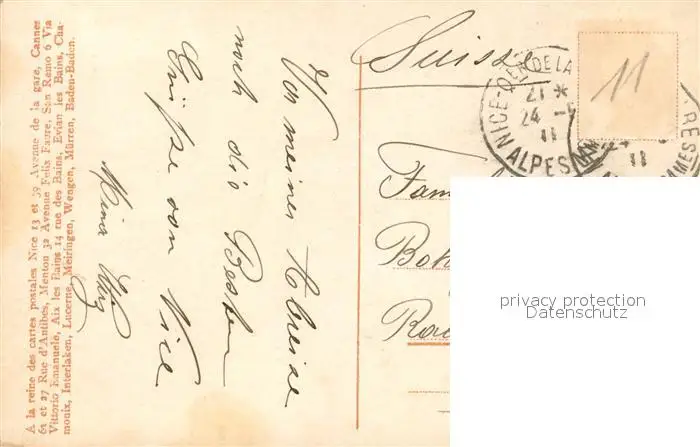 A la reine des cartes postales Nice 13 et 39 Avenue de la gare, Cannes
61 et 27 Rue d'Antibes, Menton 32 Avenue Felix Faure, San Remo 6 Via
Vittorio Emanuele, Aix les Bains 14 rue des Bains, Evian les Bains, Cha-
monix, Interlaken, Lucerne, Meiringen, Wengen, Mürren, Baden-Baden.
Vor meiner Abreise
noch die Besten
Grüße von Nice
Mina
Suisse
NICE DE LA
21 *
24
11
ALPES
11
11
RES
Fam
Boh
Ra
privacy protection
Datenschutz